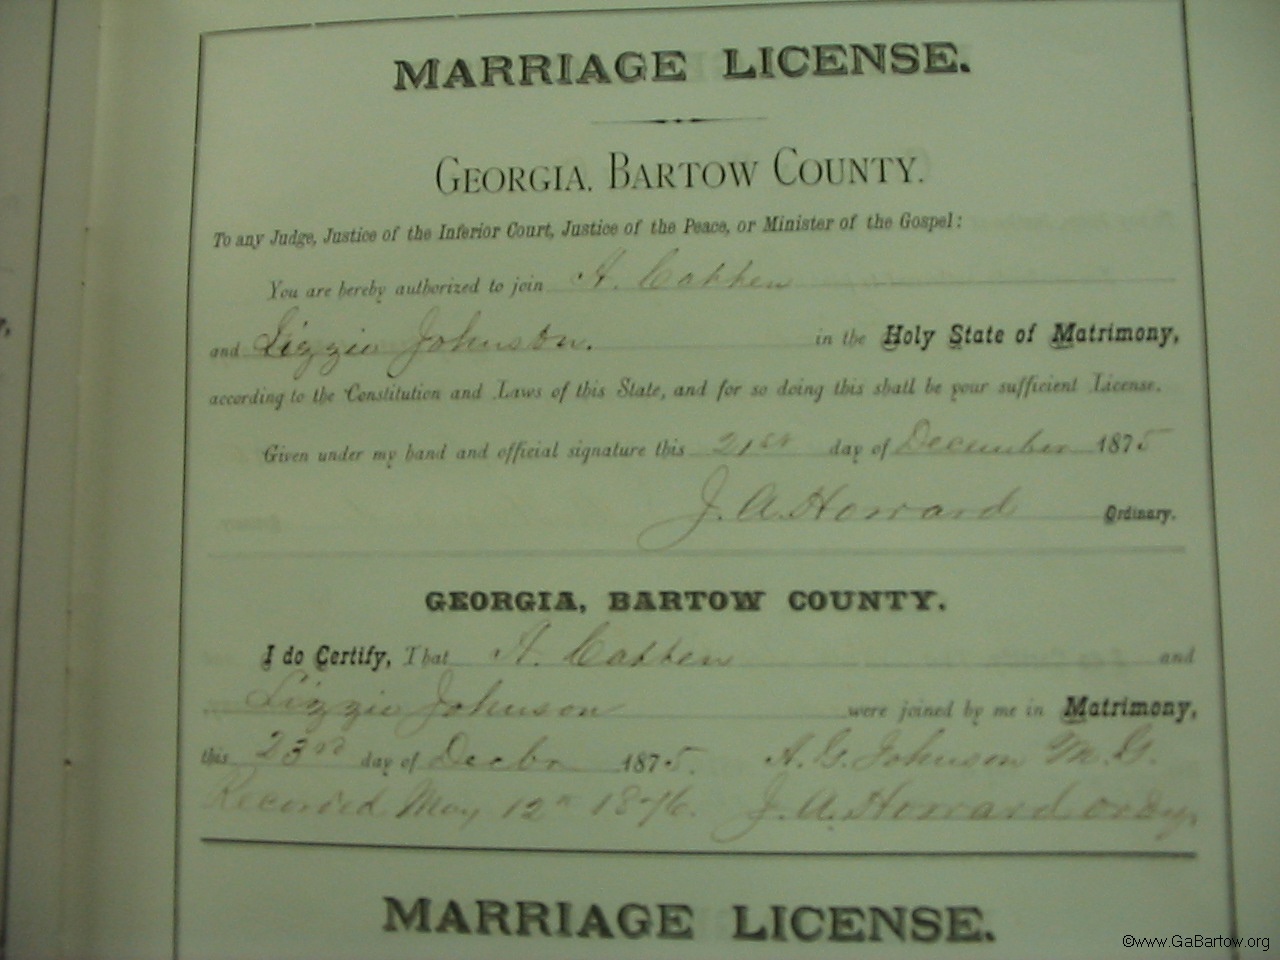 MARRIAGE LICENSE.
GEORGIA, BARTOW COUNTY.
To any Judge, Justice of the Inferior Court, Justice of the Peace, or Minister of the Gospel:
You are hereby authorized to join A.
and Lizzie Johnson. in the Holy State of Matrimony,
according to the Constitution and Laws of this State, and for so doing this shall be your sufficient License.
Given under my hand and official signature this 21st day of December 1875
J. A. Howard Ordinary.
GEORGIA, BARTOW COUNTY.
I do Certify, That A. and
Lizzie Johnson were joined by me in Matrimony,
this 23rd day of Decbr 1875. A. G. Johnson M. G.
Recorded May 12th 1876. J. A. Howard Ordy,
MARRIAGE LICENSE.
©www.GaBartow.org